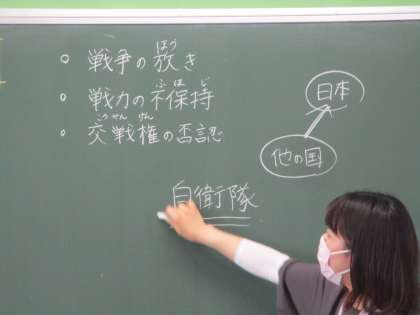 ほう
○ 戦争の放き
ふほじ
○ 戦力の不保持
こうせんけん
○ 交戦権の否認
日本
他の国
自衛隊